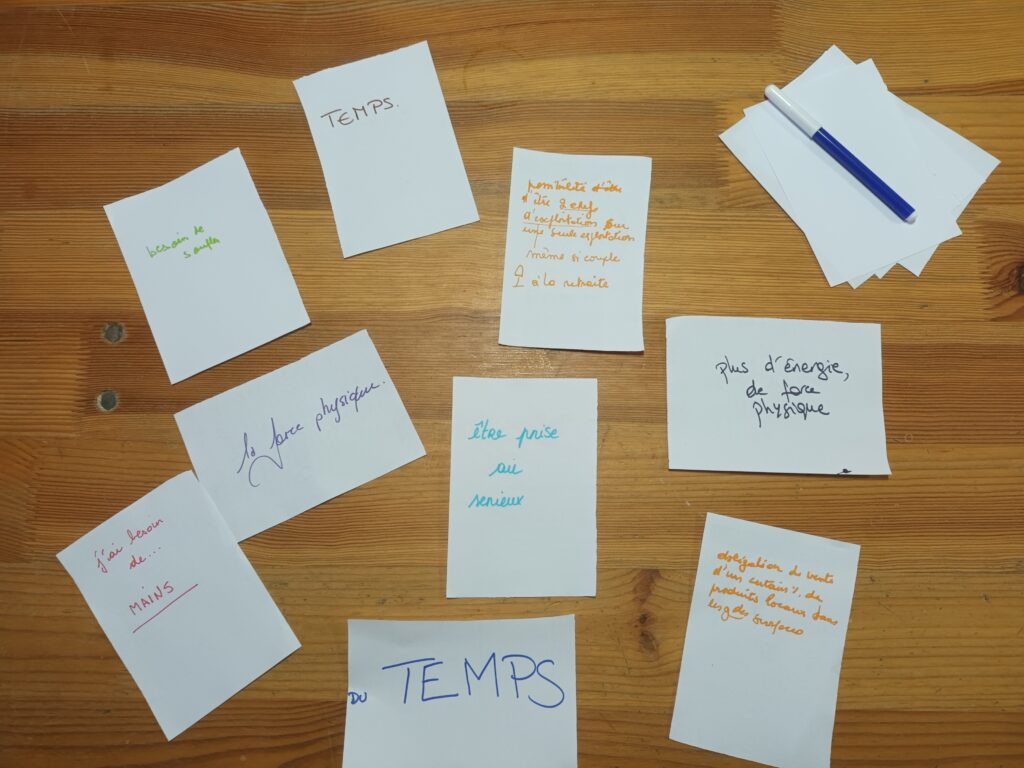 TEMPS.
besoin de
souffler
possibilité d'être
d'être 2 chefs
d'exploitation sur
une seule exploitation
même si couple
à la retraite
plus d'énergie,
de force
physique
la force physique.
être prise
au
serieux
j'ai besoin
de...
MAINS
obligation de vente
d'un certain % de
produits locaux dans
les gdes surfaces
DU TEMPS